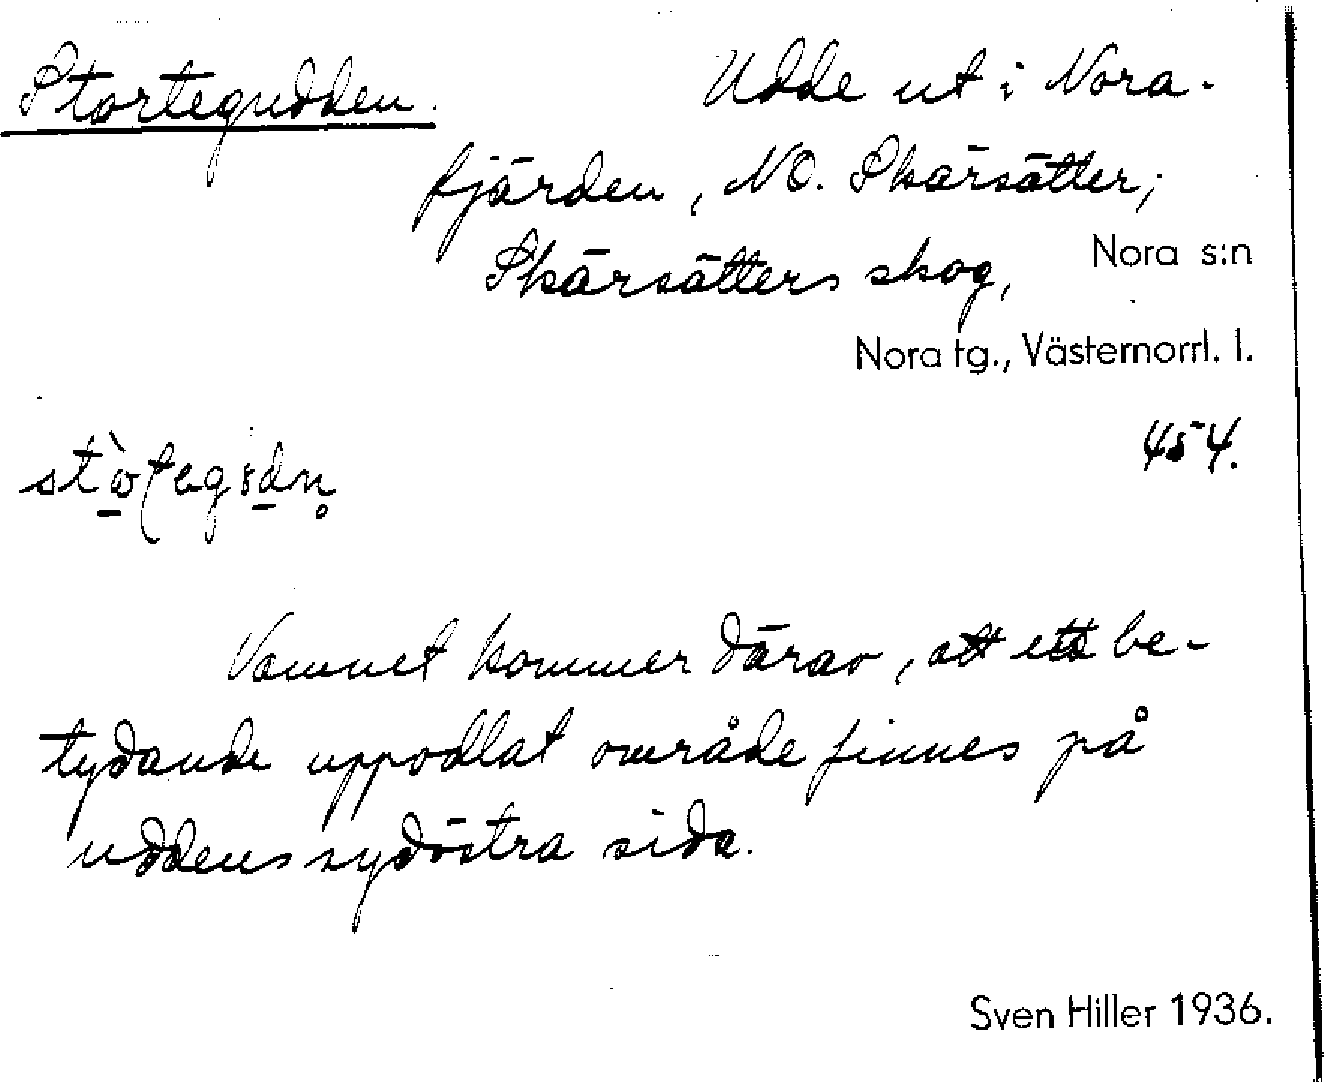 Stortegudden.
Udde ut i Nora-
fjärden, NO. Skärsätter;
Skärsätters skog, Nora s:n
Nora tg., Västernorrl. l.
454.
Namnet kommer därav, att ett be-
tydande uppodlat område finnes på
uddens sydöstra sida.
Sven Hiller 1936.